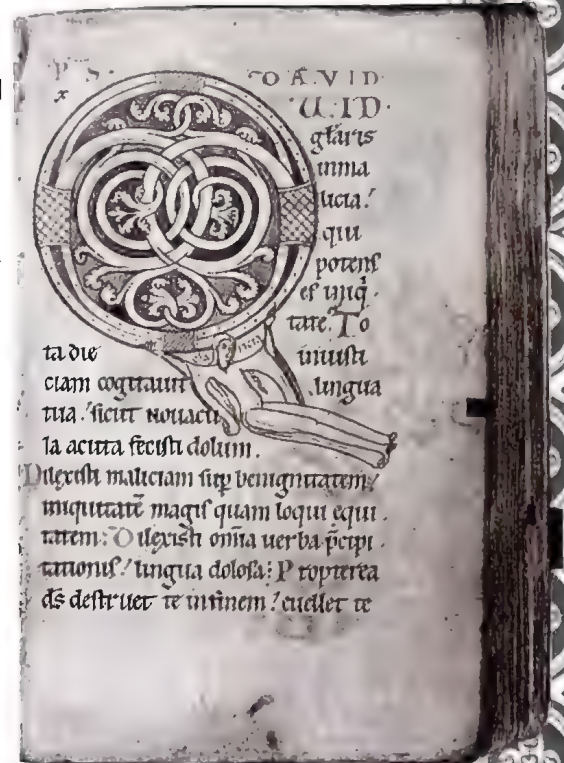 PS. DAVID.
X
Q UID
gl̃aris
inma
licia?
qui
potenſ
eſ iniq̇
tate. To
ta die iniuſti
ciam cogitauit lingua
tua. ſicut nouacu
la acuta feciſti dolum.
Dilexiſti maliciam ſup̃ benignitatem.
iniquitatē magiſ quam loqui equi
tatem: Dilexiſti om̃ia uerba p̃cipi
tationiſ. lingua doloſa: Propterea
d̃s deſtruet te infinem. euellet te